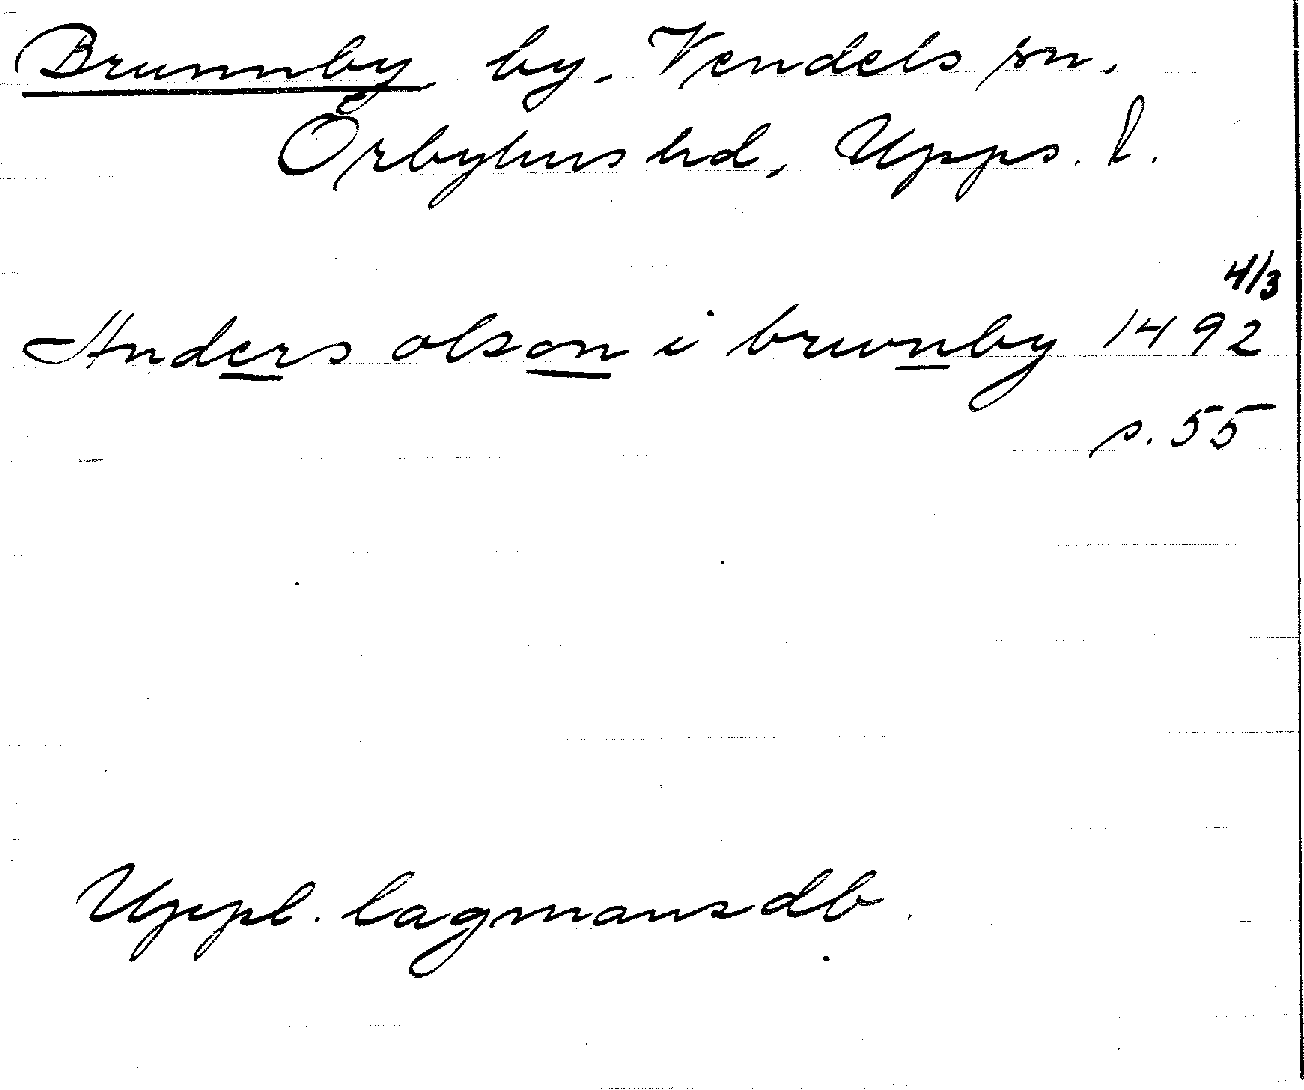 Brunnby by, Vendels sn,
Örbyhus hd, Upps. l.
4/3
Anders olson i brwnby 1492
s. 55
Uppl. lagmansdb.